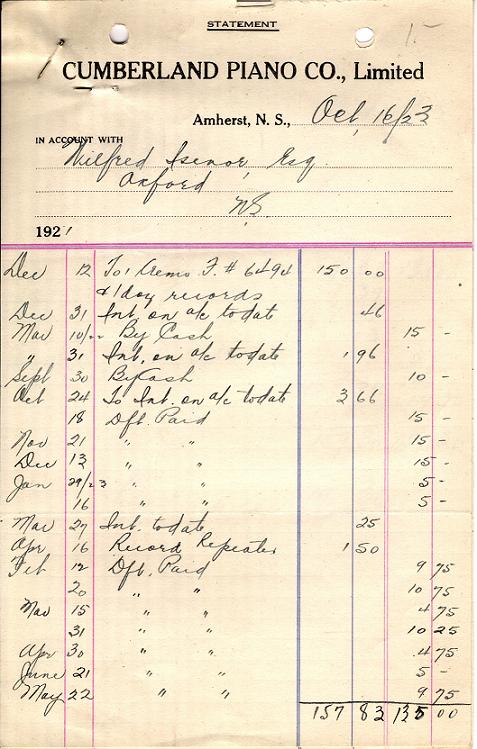 STATEMENT
1.-
CUMBERLAND PIANO CO., Limited
Amherst, N. S., Oct, 16/23
IN ACCOUNT WITH
Wilfred Isenor, Esq.
Oxford
N.S.
1921
Dec 12 To F. # 6494 150 00
& 1 doz records
Dec 31 Int, on a/c to date 46
Mar 10/22 By Cash 15 -
" 31 Int, on a/c to date 1 96
Sept 30 By Cash 10 -
Oct 24 To Int. on a/c to date 3 66
18 Dft. Paid 15 -
Nov 21 " " 15 -
Dec 13 " " 15 -
Jan 29/23 " " 5 -
16 " " 5 -
Mar 27 Int. to date 25
Apr 16 Record Repeater 1 50
Feb 12 Dft. Paid 9 75
20 " " 10 75
Mar 15 " " 4 75
31 " " 10 25
Apr 30 " " 4 75
June 21 " " 5 -
May 22 " " 9 75
157 83 135 00